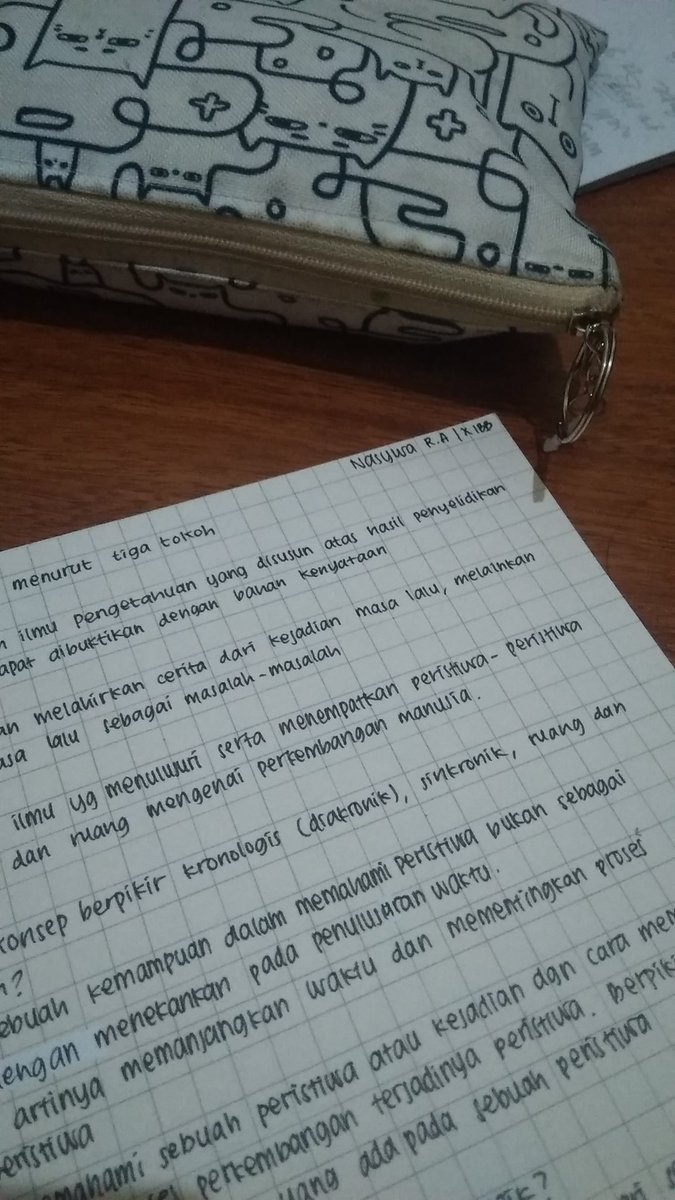 Nasywa R.A | X IBB
menurut tiga tokoh
ilmu pengetahuan yang disusun atas hasil penyelidikan
apat dibuktikan dengan bahan kenyataan
an melahirkan cerita dari kejadian masa lalu, melainkan
asa lalu sebagai masalah-masalah
ilmu yg menulusuri serta menempatkan peristiwa-peristiwa
dan ruang mengenai perkembangan manusia.
konsep berpikir kronologis (diakronik), sinkronik, ruang dan
?
ebuah kemampuan dalam memahami peristiwa bukan sebagai
dengan menekankan pada penulusuran waktu.
artinya memanjangkan waktu dan mementingkan proses
eristiwa
mahami sebuah peristiwa atau kejadian dgn cara mem
perkembangan terjadinya peristiwa. Berpiki
yang ada pada sebuah peristiwa